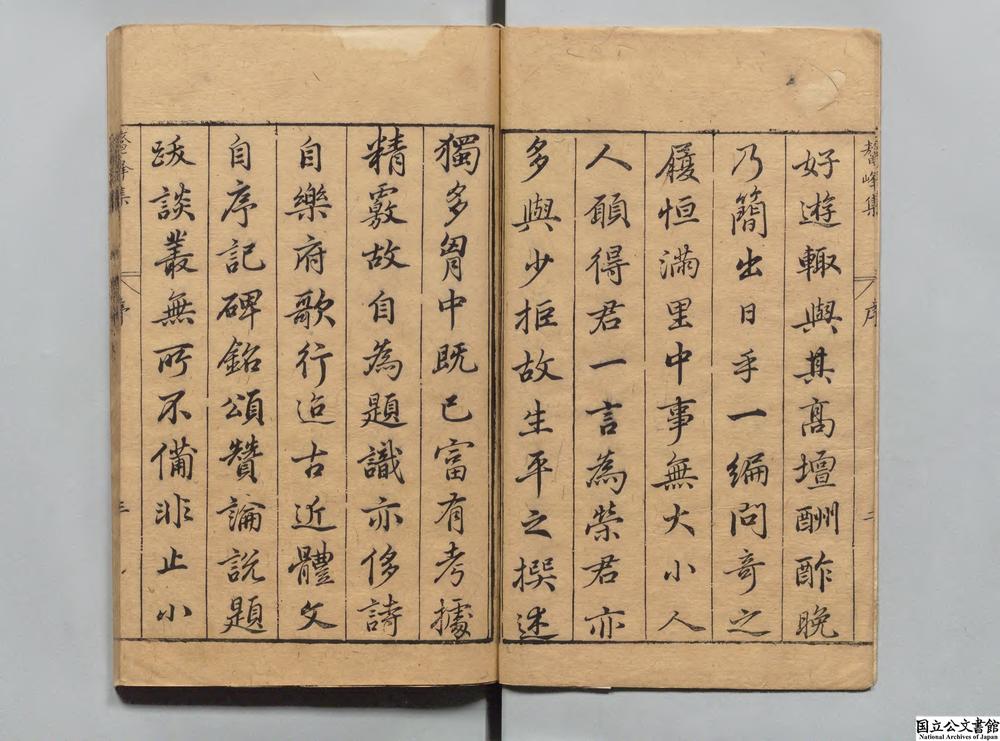 鰲峰集
序
二
好遊輙與其髙壇酬酢晩
乃簡出日手一編問奇之
履恒滿里中事無大小人
人願得君一言為榮君亦
多與少拒故生平之撰述
獨多胷中既已富有考據
精覈故自為題識亦侈詩
自樂府歌行迨古近體文
自序記碑銘頌贊論說題
跋談叢無所不備非止小
鰲峰集
序
三
国立公文書館
National Archives of Japan